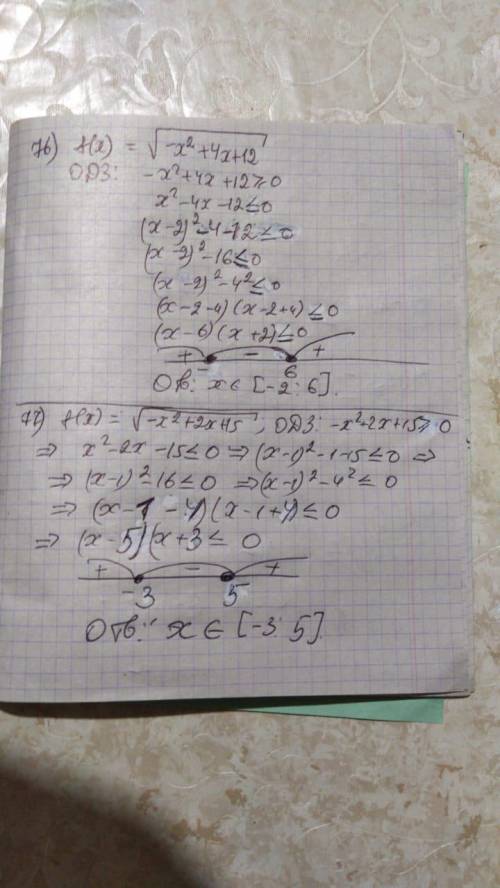 76) f(x) = √-x²+4x+12
ОДЗ: -x²+4x+12≥0
x²-4x-12≤0
(x-2)²-4-12≤0
(x-2)²-16≤0
(x-2)²-4²≤0
(x-2-4)(x-2+4)≤0
(x-6)(x+2)≤0
+ - +
- 6
Отв: x∈[-2; 6].
77) f(x) = √-x²+2x+15; ОДЗ: -x²+2x+15≥0
⇒ x²-2x-15≤0 ⇒ (x-1)²-1-15≤0 ⇒
⇒ (x-1)²-16≤0 ⇒ (x-1)²-4²≤0
⇒ (x-1-4)(x-1+4)≤0
⇒ (x-5)(x+3≤0
+ - +
-3 5
Отв: x∈[-3; 5].